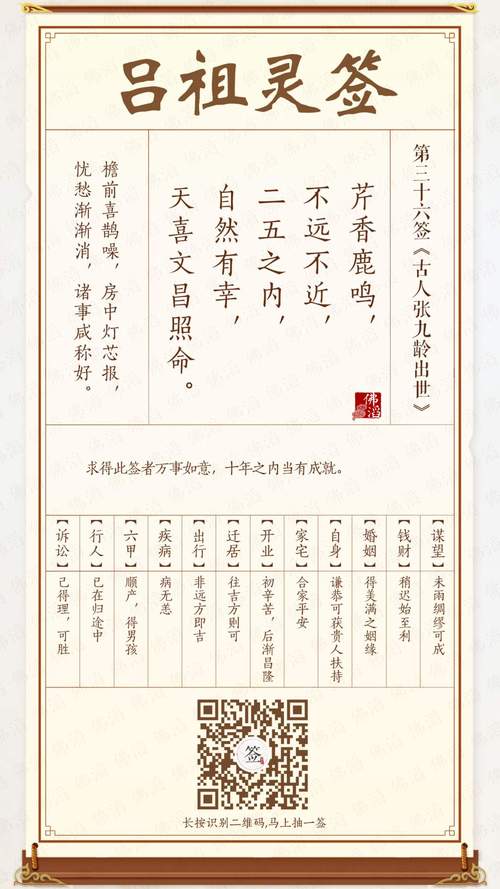 吕祖灵签
第三十六签《古人张九龄出世》
芹香鹿鸣，
不远不近，
二五之内，
自然有幸，
天喜文昌照命。
檐前喜鹊噪，房中灯芯报，
忧愁渐渐消，诸事咸称好。
佛滔
求得此签者万事如意，十年之内当有成就。
【谋望】未雨绸缪可成
【钱财】稍迟始至利
【婚姻】得美满之姻缘
【自身】谦恭可获贵人扶持
【家宅】合家平安
【开业】初辛苦，后渐昌隆
【迁居】往吉方则可
【出行】非远方即吉
【疾病】病无恙
【六甲】顺产，得男孩
【行人】已在归途中
【诉讼】己得理，可胜
签
长按识别二维码,马上抽一签